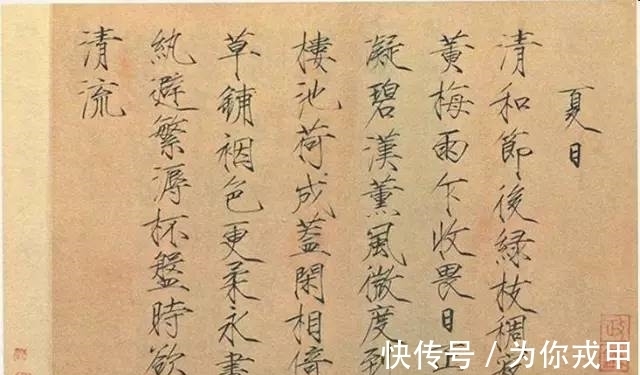 夏日
清和節後綠枝稠
黃梅雨乍收畏日正
凝碧漢薰風微度到
樓池荷成蓋閑相倚
草鋪裀色更柔永晝
紈避繁溽杯盤時欲
清流
快传号 / 为你戎甲